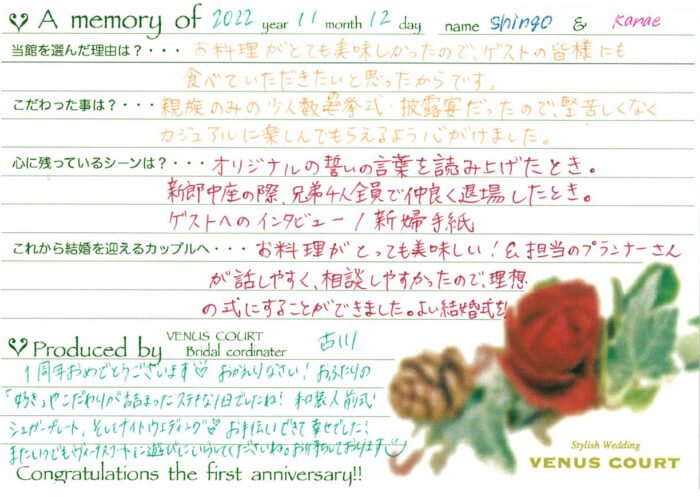 A memory of 2022 year 11 month 12 day name Shingo & Kanae
当館を選んだ理由は？・・・お料理がとても美味しかったので、ゲストの皆様にも
食べていただきたいと思ったからです。
こだわった事は？・・・親族のみの少人数挙式・披露宴だったので、堅苦しくなく
カジュアルに楽しんでもらえるよう心がけました。
心に残っているシーンは？・・・オリジナルの誓いの言葉を読み上げたとき。
新郎中座の際、兄弟4人全員で仲良く退場したとき。
ゲストへのインタビュー / 新婦手紙
これから結婚を迎えるカップルへ・・・お料理がとっても美味しい！& 担当のプランナーさん
が話しやすく、相談しやすかったので、理想
の式にすることができました。よい結婚式を！
Produced by VENUS COURT Bridal cordinater 古川
1周年おめでとうございます♡ おかえりなさい！おふたりの
「好き」やこだわりが詰まったステキな1日でしたね！和装人前式
シュガープレート、そしてナイトウエディング♡ お手伝いできて幸せでした！
またいつでもヴィーナスコートに遊びにいらしてくださいね。お待ちしております
Congratulations the first anniversary!!
Stylish Wedding
VENUS COURT